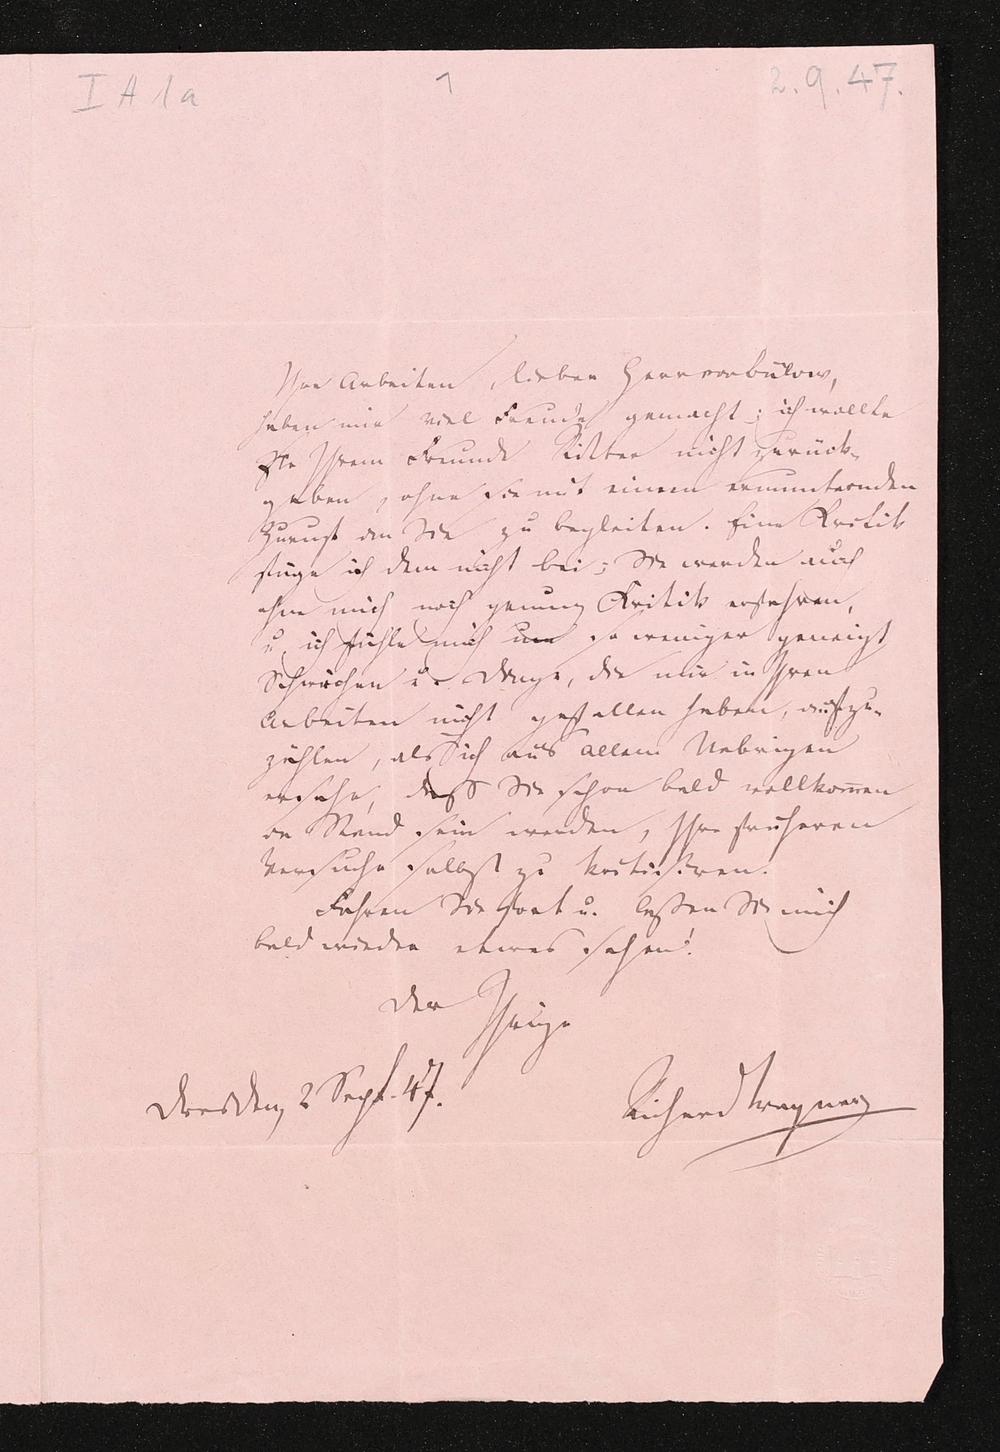 I A 1a 1 2.9.47.
Ihre Arbeiten, lieber Herr von Bülow,
haben mir viel Freude gemacht; ich wollte
sie Ihrem Freunde Ritter nicht zurück-
geben, ohne sie mit einem ermunternden
Zuruf an Sie zu begleiten. Eine Kritik
füge ich dem nicht bei; Sie werden auch
ohne mich noch genung Kritik erfahren,
u. ich fühle mich um so weniger geneigt
Schwächen u. Dinge, die mir in Ihren
Arbeiten nicht gefallen haben, aufzu-
zählen, als ich aus allem Uebrigen
ersehe, daß Sie schon bald vollkom̅en
im Stand sein werden, Ihre früheren
Versuche selbst zu kritisiren.
Fahren Sie fort u. laßen Sie mich
bald wieder etwas sehen!
Der Ihrige
Dresden, 2 Sept. 47. Richard Wagner